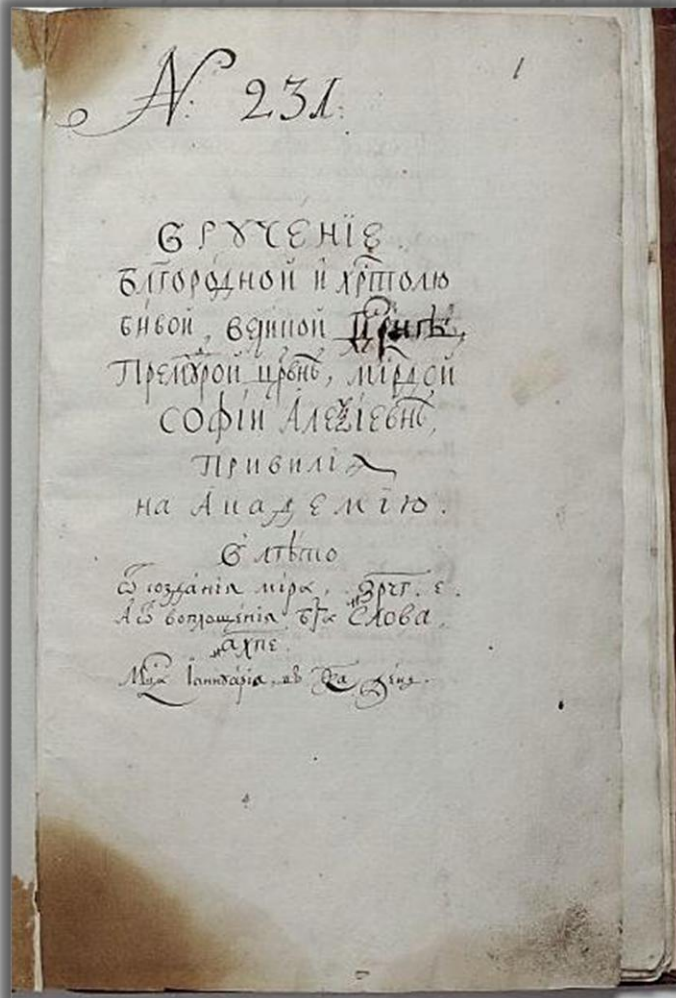 №: 231.
1
ВРУЧЕНЇЕ
Бл҃горо́дной и҆ хрⷭ҇толю
би́вой, вели́кой
Премⷣрой црⷭ҇внѣ, млⷭ҇рдой
СОФІ́И А҆леѯі́евнѣ,
Привилїѧ
на А҆кадемі́ю.
В лѣто
ѿ созда́нїѧ мі́ра, ҂зрч҃г. е.
А҆ ѿ воплоще́нїѧ бг҃а Сло́ва,
҂ахпе.
Мцⷭ҇а І҆аннꙋа́рїа, въ к҃а де́нь.